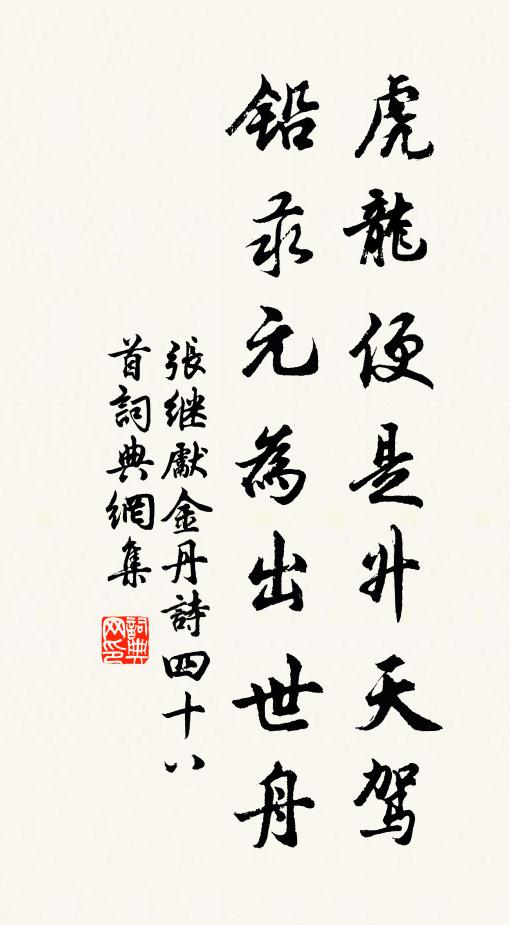 虎龍便是升天駕
鉛汞元為出世舟
張继獻金丹詩四十八
首詞典網集
詞典
网印